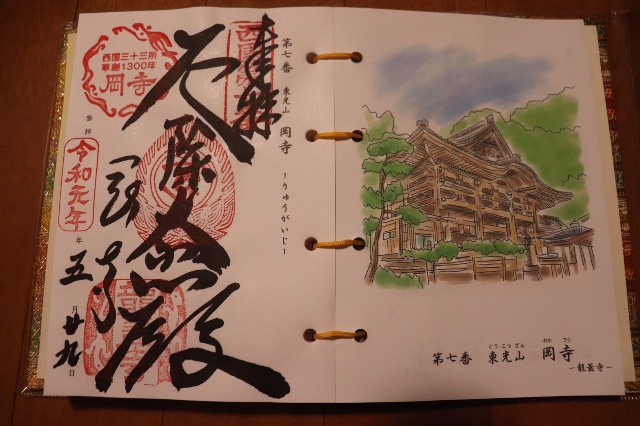 第七番 東光山 岡寺 ～りゅうがいじ～
奉拝
厄除大悲殿
西国三十三所
草創1300年
岡寺
参拝
令和元年
年 五月廿九日
とうこうざん おかでら
第七番 東光山 岡寺
－龍蓋寺－